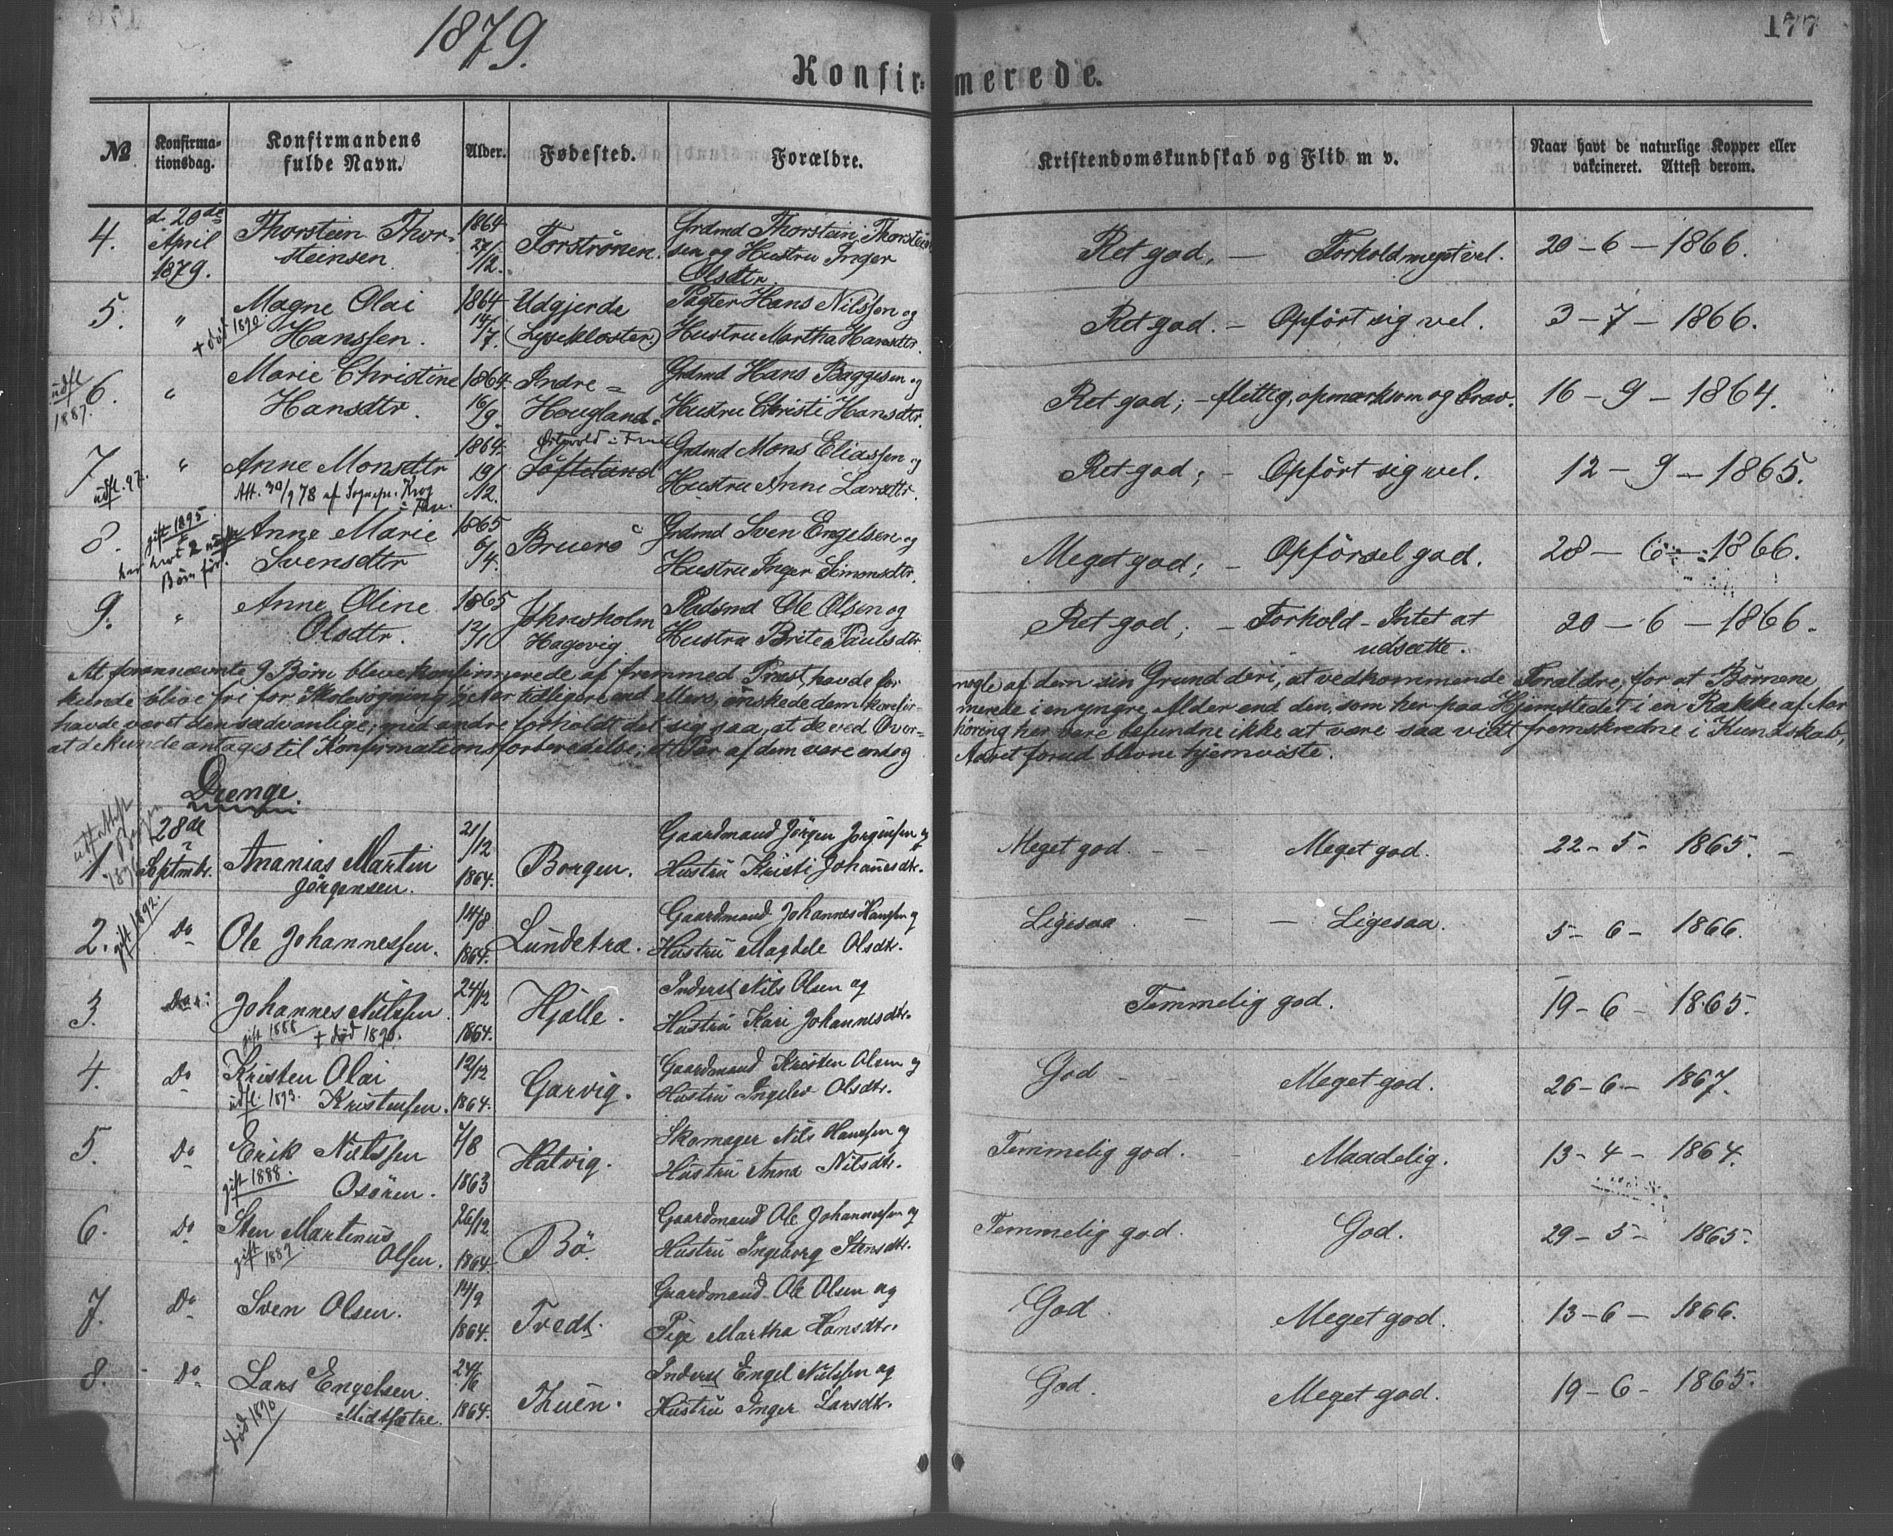 1879.
177
Konfirmerede.
№ Konfirmationsdag. Konfirmandens fulde Navn. Alder. Fødested. Forældre. Kristendomskundskab og Flid m v. Naar havt de naturlige Kopper eller vakcineret. Attest derom.
4. d. 20de April 1879. Thorstein Thorsteinsen 1864 27/12. Forstrønen. Grdmd Thorstein Thorsteinsen og Hustru Inger Olsdtr Ret god. — Forhold meget vel. 20 - 6 - 1866.
5. " Magne Olai Hanssen. + død 1890 1864 14/7. Udgjerde (Lysekloster) Pagter Hans Nilssen og Hustru Martha Hansdtr. Ret god. - Opført sig vel. 3 - 7 - 1866.
udfl 1887. 6. " Marie Christine Hansdtr. 1864 16/9. Indre = Hougland. Grdmd Hans Baggesen og Hustru Christi Hansdtr. Ret god; - flittig, opmærksom og brav. 16 - 9 - 1864.
7 udfl. 92. " Anne Monsdtr Att. 30/9 78 af Sognepr. 1864 19/12. Søfteland Grdmd Mons Eliassen og Hustru Anne Larsdtr. Ret god; - Opført sig vel. 12 - 9 - 1865.
8. gift 1895. har havt 2 Børn før. Anne Marie Svensdtr 1865 6/4. Bruerø Grdmd Sven Engelsen og Hustru Inger Simonsdtr. Meget god; - Opførsel god. 28 - 6 - 1866.
9. " Anne Oline Olsdtr. 1865 12/1 Johnsholm Hagevig. Pladsmd Ole Olsen og Hustru Brite Paulsdtr. Ret god; - Forhold - Intet at udsætte. 20 - 6 - 1866.
At forannævnte 9 Børn bleve konfirmerede af fremmed Præst havde for nogle af dem sin Grund deri, at vedkommende Forældre, for at Børnene
kunde blive fri for Skolesøgning 1/2 Aar tidligere end ellers, ønskede dem konfirmerede i en yngre Alder end den, som her paa Hjemstedet i en Række af Aar
havde været den sædvanlige; med andre forholdt det sig saa, at de ved Overhøring her bare befundne ikke at være saa vidt fremskredne i Kundskab,
at de kunde antages til Konfirmationsforberedelse; et Par af dem vare endog Aaret forud blevne hjemviste.
Drenge.
1. 28de Septmbr. Ananias Martin Jørgensen. 21/12 1864. Borgen. Gaardmand Jørgen Jørgensen og Hustru Kristi Johannesdtr. Meget god. - - Meget god. 22 - 5 - 1865. -
2. gift 1892. Do Ole Johannessen. 14/8 1864. Lundetræ. Gaardmand Johannes Hanssen og Hustru Magdele Olsdtr. Ligesaa - - Ligesaa. 5 - 6 - 1866.
3. Do Johannes Nielssen gift 1888 + død 1890. 24/12 1864. Hjelle. Inderst Nils Olsen og Hustru Kari Johannesdtr. Temmelig god. 19 - 6 - 1865.
4. Do Kristen Olai Kristensen. udfl. 1893. 12/12 1864. Garvig. Gaardmand Kristen Olsen og Hustru Ingelev Olsdtr. God - - Meget god. 26 - 6 - 1867.
5. Do Erik Nielssen Osøren. gift 1888. 4/8 1863 Hatvig. Skomager Nils Hanssen og Hustru Anna Nilsdtr. Temmelig god. - Maadelig. 13 - 4 - 1864.
6. Do Sten Martinus Olsen. gift 1887 26/12. 1864. Bø Gaardmand Ole Johannessen og Hustru Ingeborg Stensdtr. Temmelig god. God. 29 - 5 - 1865.
7. Do Sven Olsen. 14/9 1864. Tvedt. Gaardmand Ole Olsen og Pige Martha Hansdtr. God Meget god. 13 - 6 - 1866.
8. - Do Lars Engelsen Midtsætre. død 1890 24/6 1864. Thuen. Inderst Engel Nielssen og Hustru Inger Larsdtr. God. Meget god. 19 - 6 - 1865.